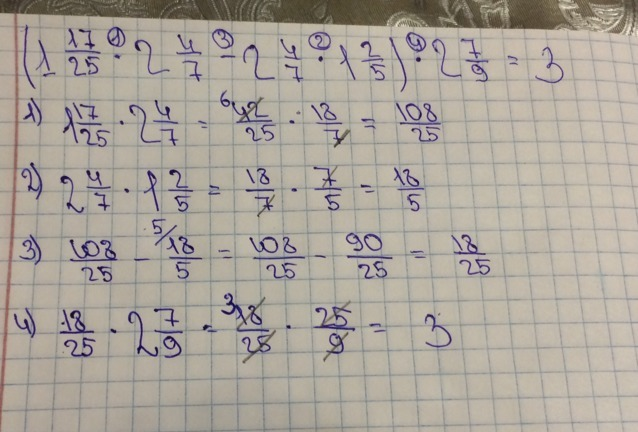 (1 17/25 ·① 2 4/7 -③ 2 4/7 ·② 1 2/5) ·④ 2 7/9 = 3
1) 1 17/25 · 2 4/7 = ⁶42/25 · 18/7 = 108/25
2) 2 4/7 · 1 2/5 = 18/7 · 7/5 = 18/5
3) 108/25 - ⁵⁄18/5 = 108/25 - 90/25 = 18/25
4) 18/25 · 2 7/9 = ³18/25 · 25/9 = 3